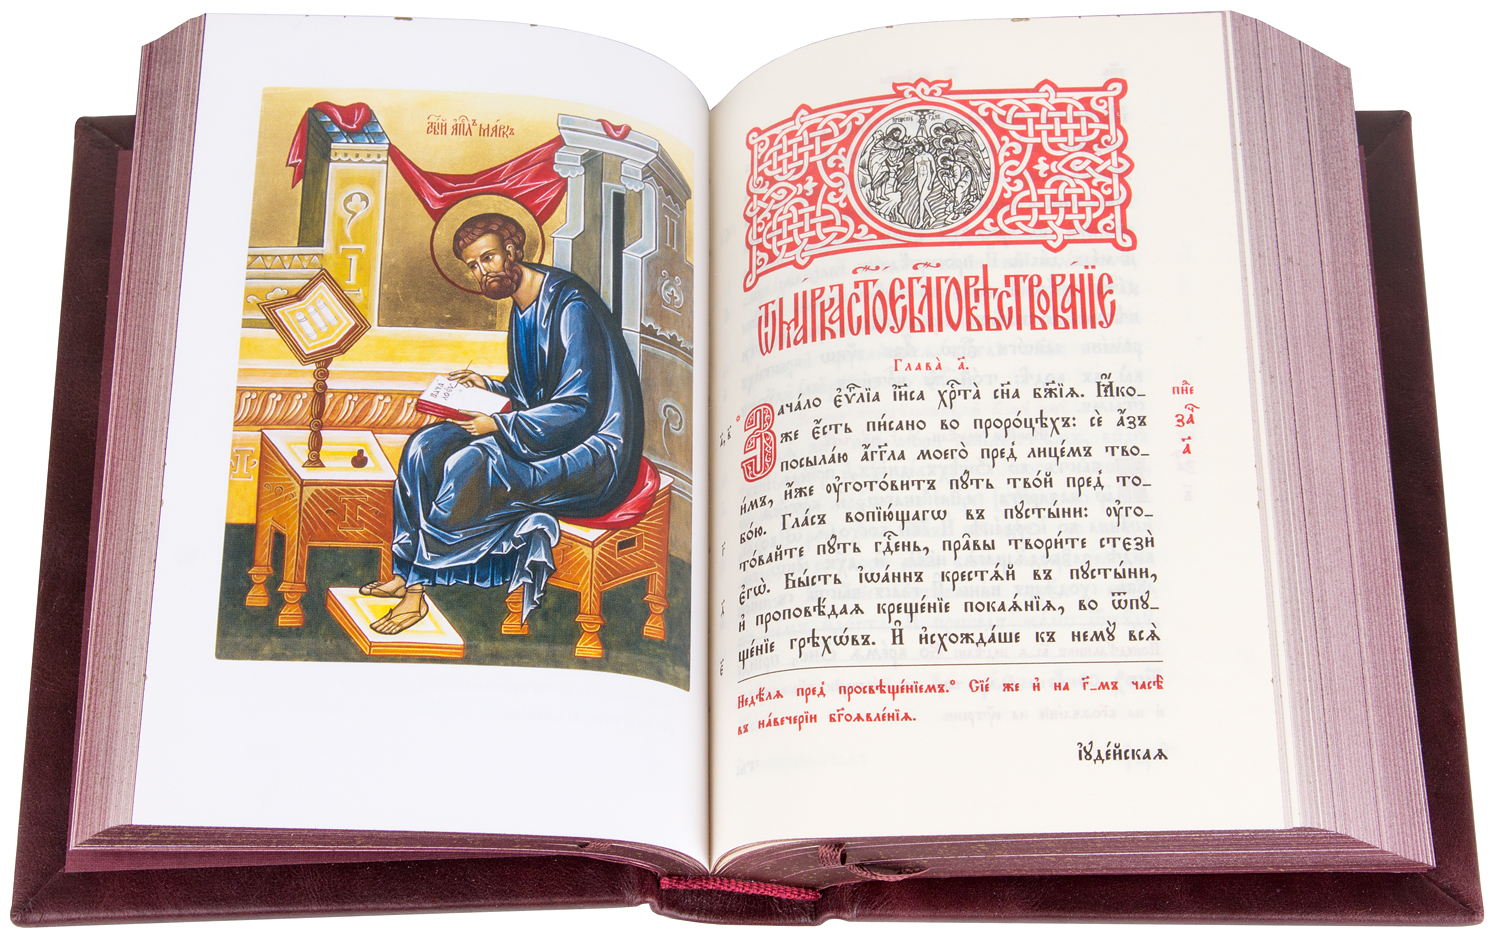 а҆́гїй а҆пⷭ҇лъ ма́ркъ
зача
лоєѵ
крещенїе гдⷭ҇не
Ѿ ма́рка ст҃о́е бл҃говѣствова́нїе
Глава̀ а҃.
Зача́ло є҆ѵⷢ҇лїа і҆и҃са хрⷭ҇та̀ сн҃а бж҃їѧ. Ꙗ҆́ко-
же є҆́сть пи́сано во проро́цѣхъ: сѐ а҆́зъ
посыла́ю а҆́гг҃ла моегѡ̀ пред̾ лице́мъ тво-
и́мъ, и҆́же ᲂу҆гото́витъ пꙋ́ть тво́й пред̾ то-
бо́ю. Гла́съ вопїю́щагѡ въ пꙋсты́ни: ᲂу҆го-
то́вайте пꙋ́ть гдⷭ҇ень, пра̑вы твори́те стєзѝ
є҆гѡ̀. Бы́сть і҆ѡа́ннъ крестѧ́й въ пꙋсты́ни,
и҆ проповѣ́даѧ креще́нїе покаѧ́нїѧ, во ѿпꙋ-
ще́нїе грѣхѡ́въ. И҆ и҆схожда́ше къ немꙋ̀ всѧ̀
пнⷣе
за҃ч
а҃
Недѣ́лѧ пред̾ просвѣще́нїемъ. Сїе́ же и҆ на г҃-мъ часѣ̀
въ наве́черїи бг҃оѧвле́нїѧ.
і҆ꙋде́йскаѧ